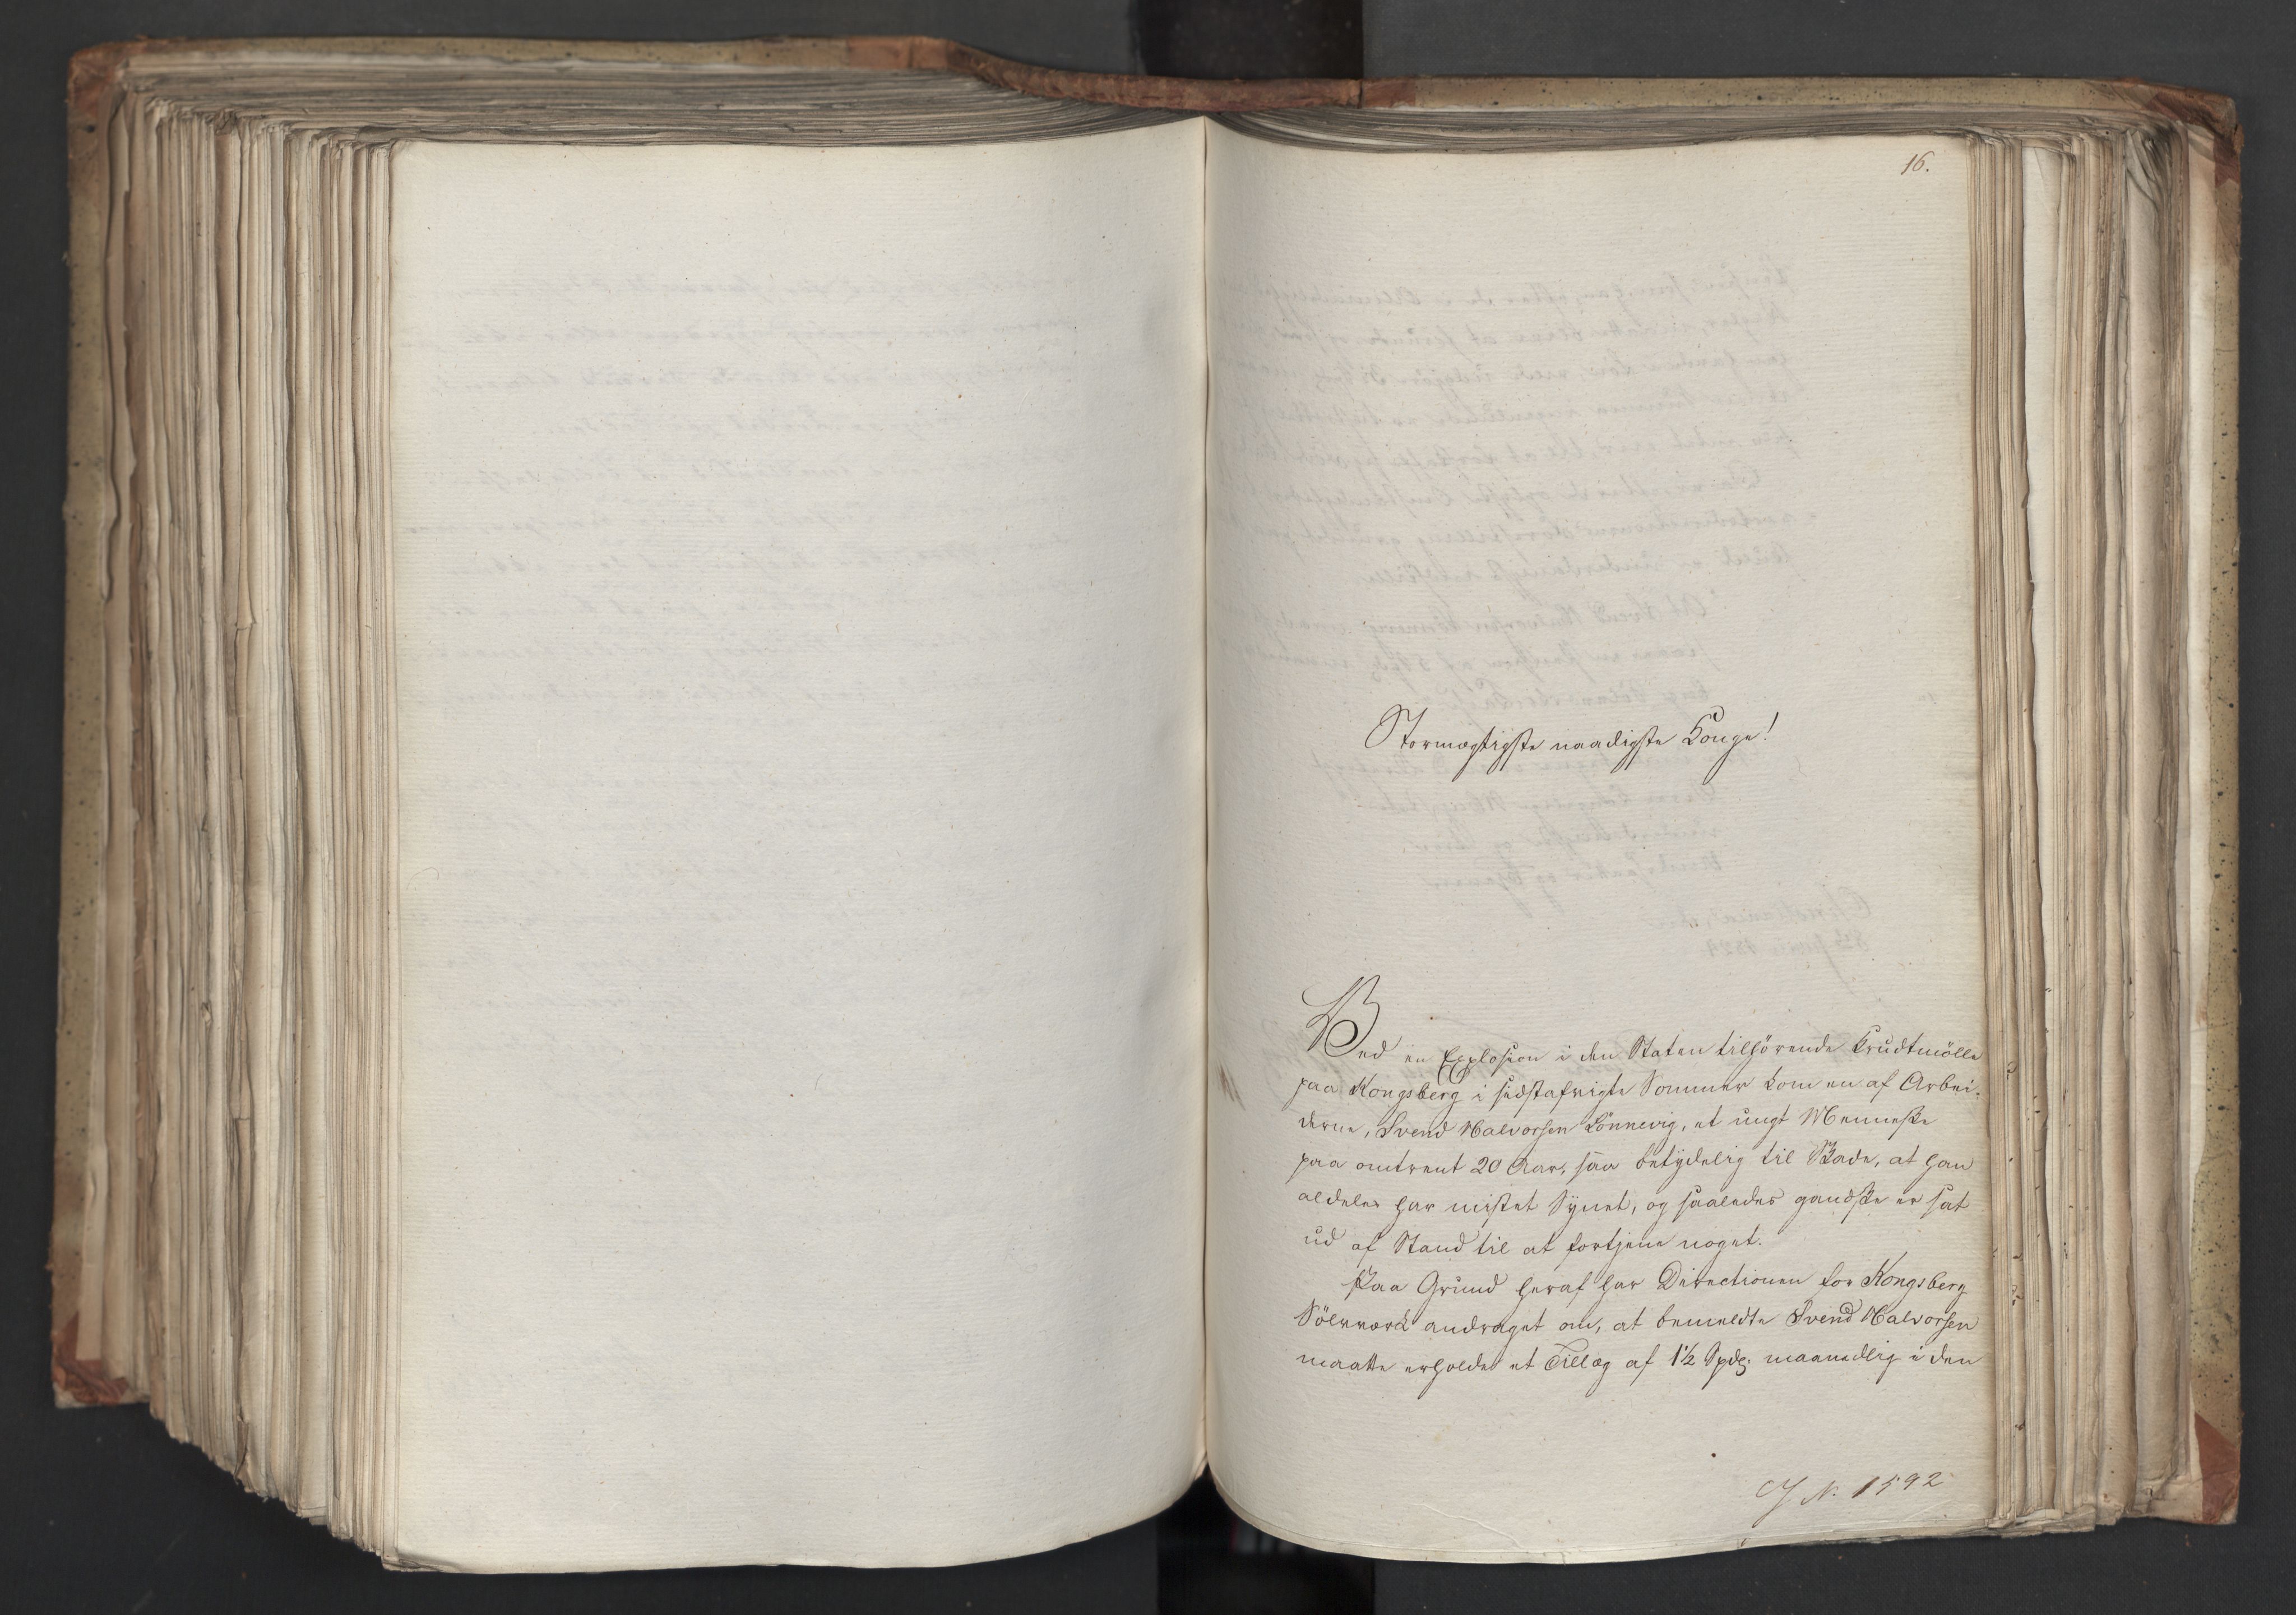 16.
Stormægtigste naadigste Konge!
Ved en Explosion i den Staten tilhörende Krudtmölle
paa Kongsberg i sidstafvigte Sommer kom en af Arbei-
derne, Svend Halvorsen Lönnevig, et ungt Menneske
paa omtrent 20 Aar, saa betydelig til Skade, at han
aldeles har mistet Synet, og saaledes gandske er sat
ud af Stand til at fortjene noget.
Paa Grund heraf har Directionen for Kongsberg
Sölvværk andraget om, at bemeldte Svend Halvorsen
maatte erholde et Tillæg af 1½ Spd. maanedlig i den
J N. 1592